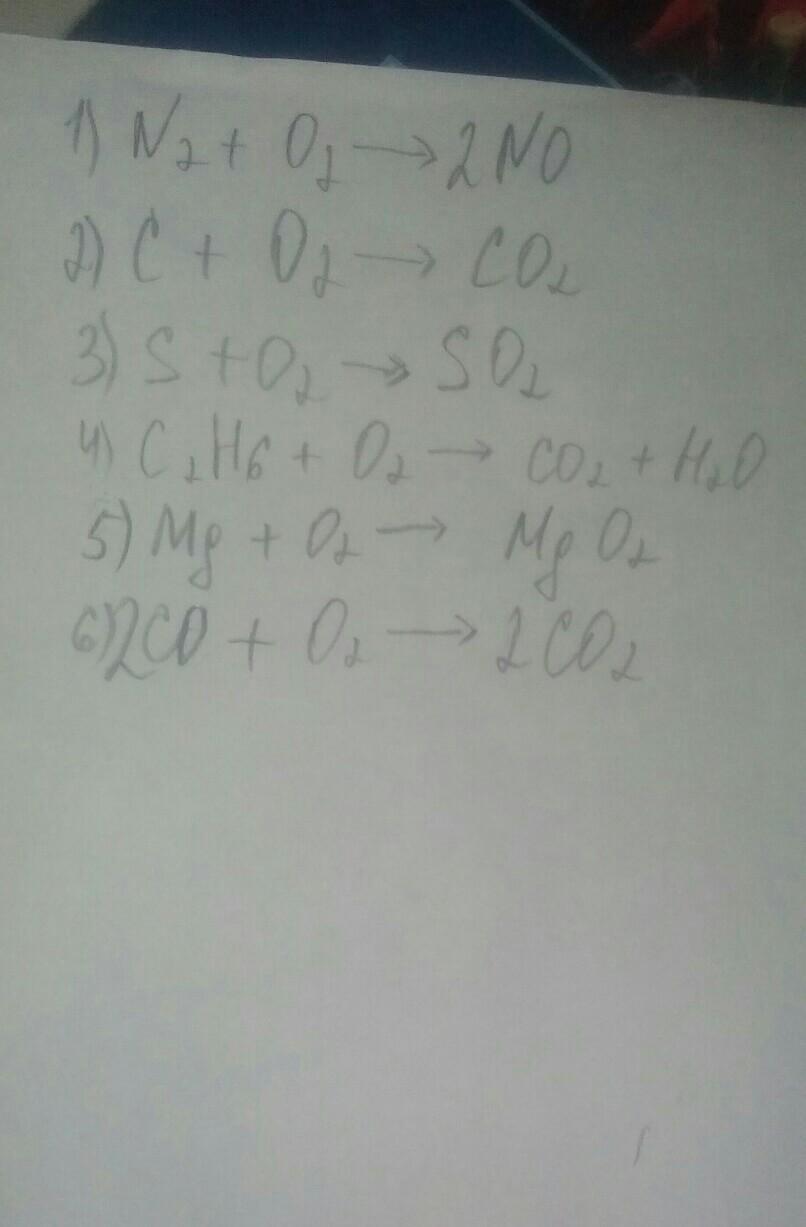 1) N₂ + O₂ → 2NO
2) C + O₂ → CO₂
3) S + O₂ → SO₂
4) C₂H6 + O₂ → CO₂ + H₂O
5) Mg + O₂ → MgO₂
6) 2CO + O₂ → 2CO₂